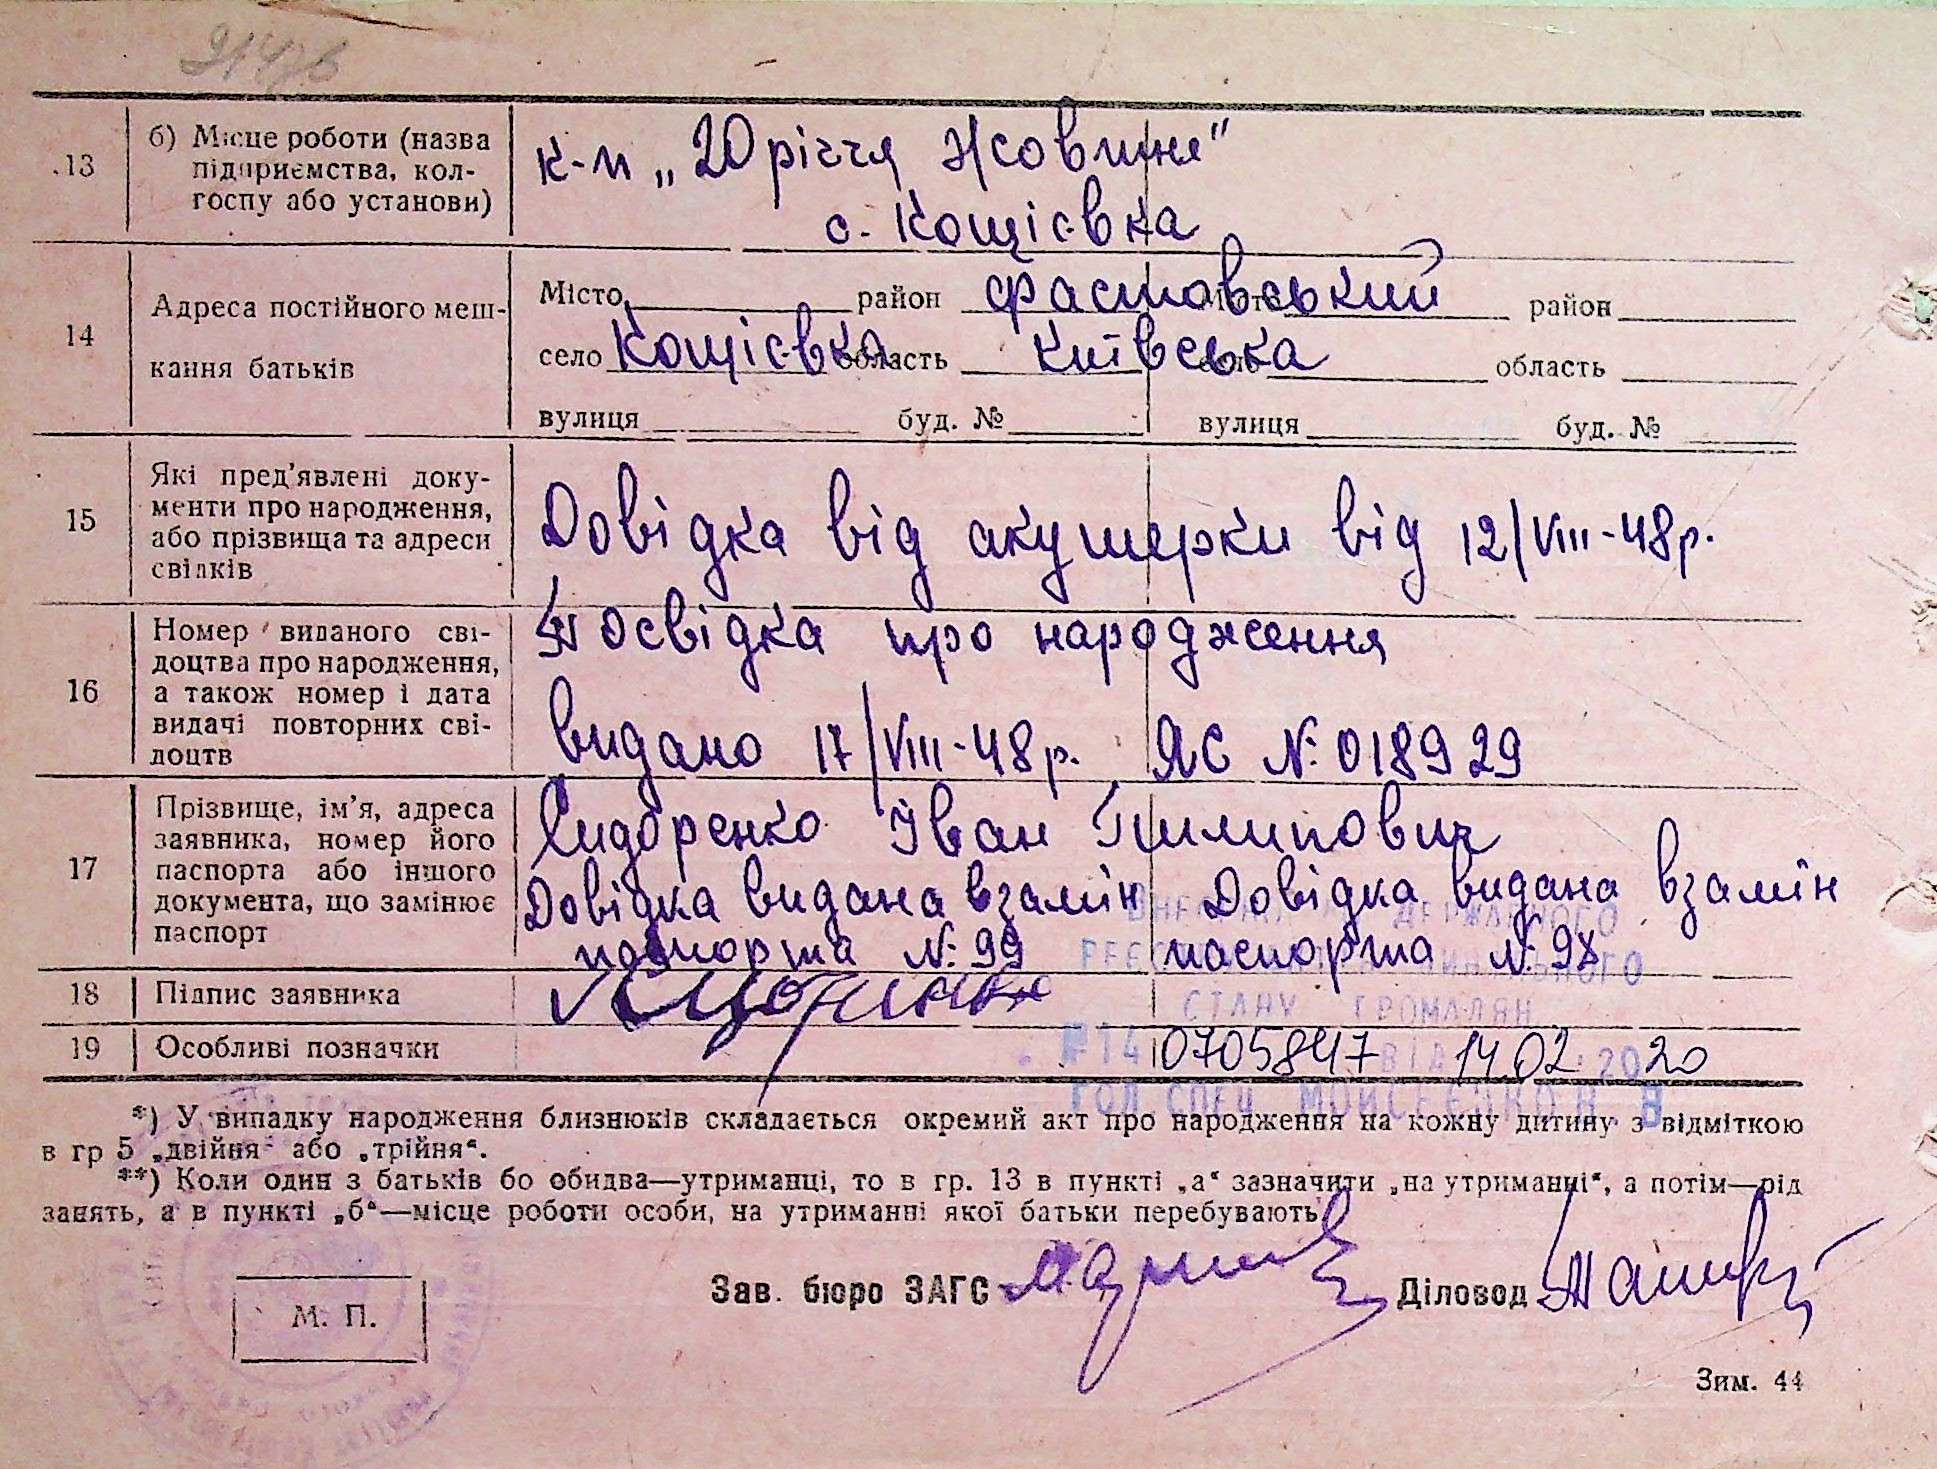 13
б) Місце роботи (назва
підприємства, кол-
госпу або установи)
к-п „20 річчя Жовтня"
с. Кощієвка
14
Адреса постійного меш-
кання батьків
Місто район Фастовський район
село Кощієвка область Київська область
вулиця буд. № вулиця буд. №
15
Які пред'явлені доку-
менти про народження,
або прізвища та адреси
свідків
Довідка від акушерки від 12/VIII-48 р.
16
Номер виданого сві-
доцтва про народження,
а також номер і дата
видачі повторних сві-
доцтв
Посвідка про народження
видано 17/VIII-48 р. ЯС №: 018929
17
Прізвище, ім'я, адреса
заявника, номер його
паспорта або іншого
документа, що замінює
паспорт
Сидоренко Іван Пилипович
Довідка видана взамін Довідка видана взамін
паспорта №: 99 паспорта № 98
18
Підпис заявника
19
Особливі позначки
ДЕРЖАВНОГО
СТАНУ ГРОМАДЯН
0705847 ВІД 14.02.2020
ГОЛ СПЕЦ МОЙСЕЄНКО Н В
*) У випадку народження близнюків складається окремий акт про народження на кожну дитину з відміткою
в гр 5 „двійня" або „трійня".
**) Коли один з батьків бо обидва—утриманці, то в гр. 13 в пункті „а" зазначити „на утриманні", а потім—рід
занять, а в пункті „б"—місце роботи особи, на утриманні якої батьки перебувають
М. П.
Зав. бюро ЗАГС
Діловод
Зим. 44